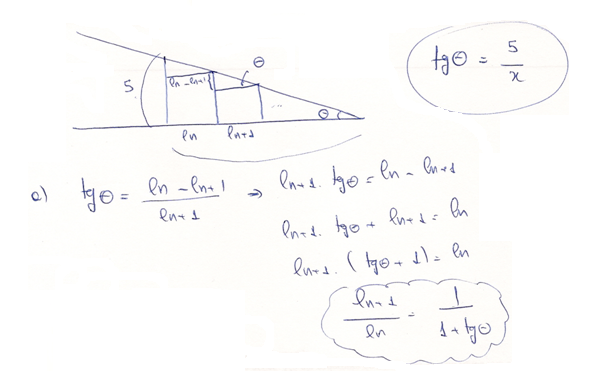 tgΘ = 5/x
Θ
5
ln - ln+1
Θ
...
ln ln+1
a) tgΘ = (ln - ln+1)/(ln+1) => ln+1 . tgΘ = ln - ln+1
ln+1 . tgΘ + ln+1 = ln
ln+1 . (tgΘ + 1) = ln
ln+1/ln = 1/(1 + tgΘ)